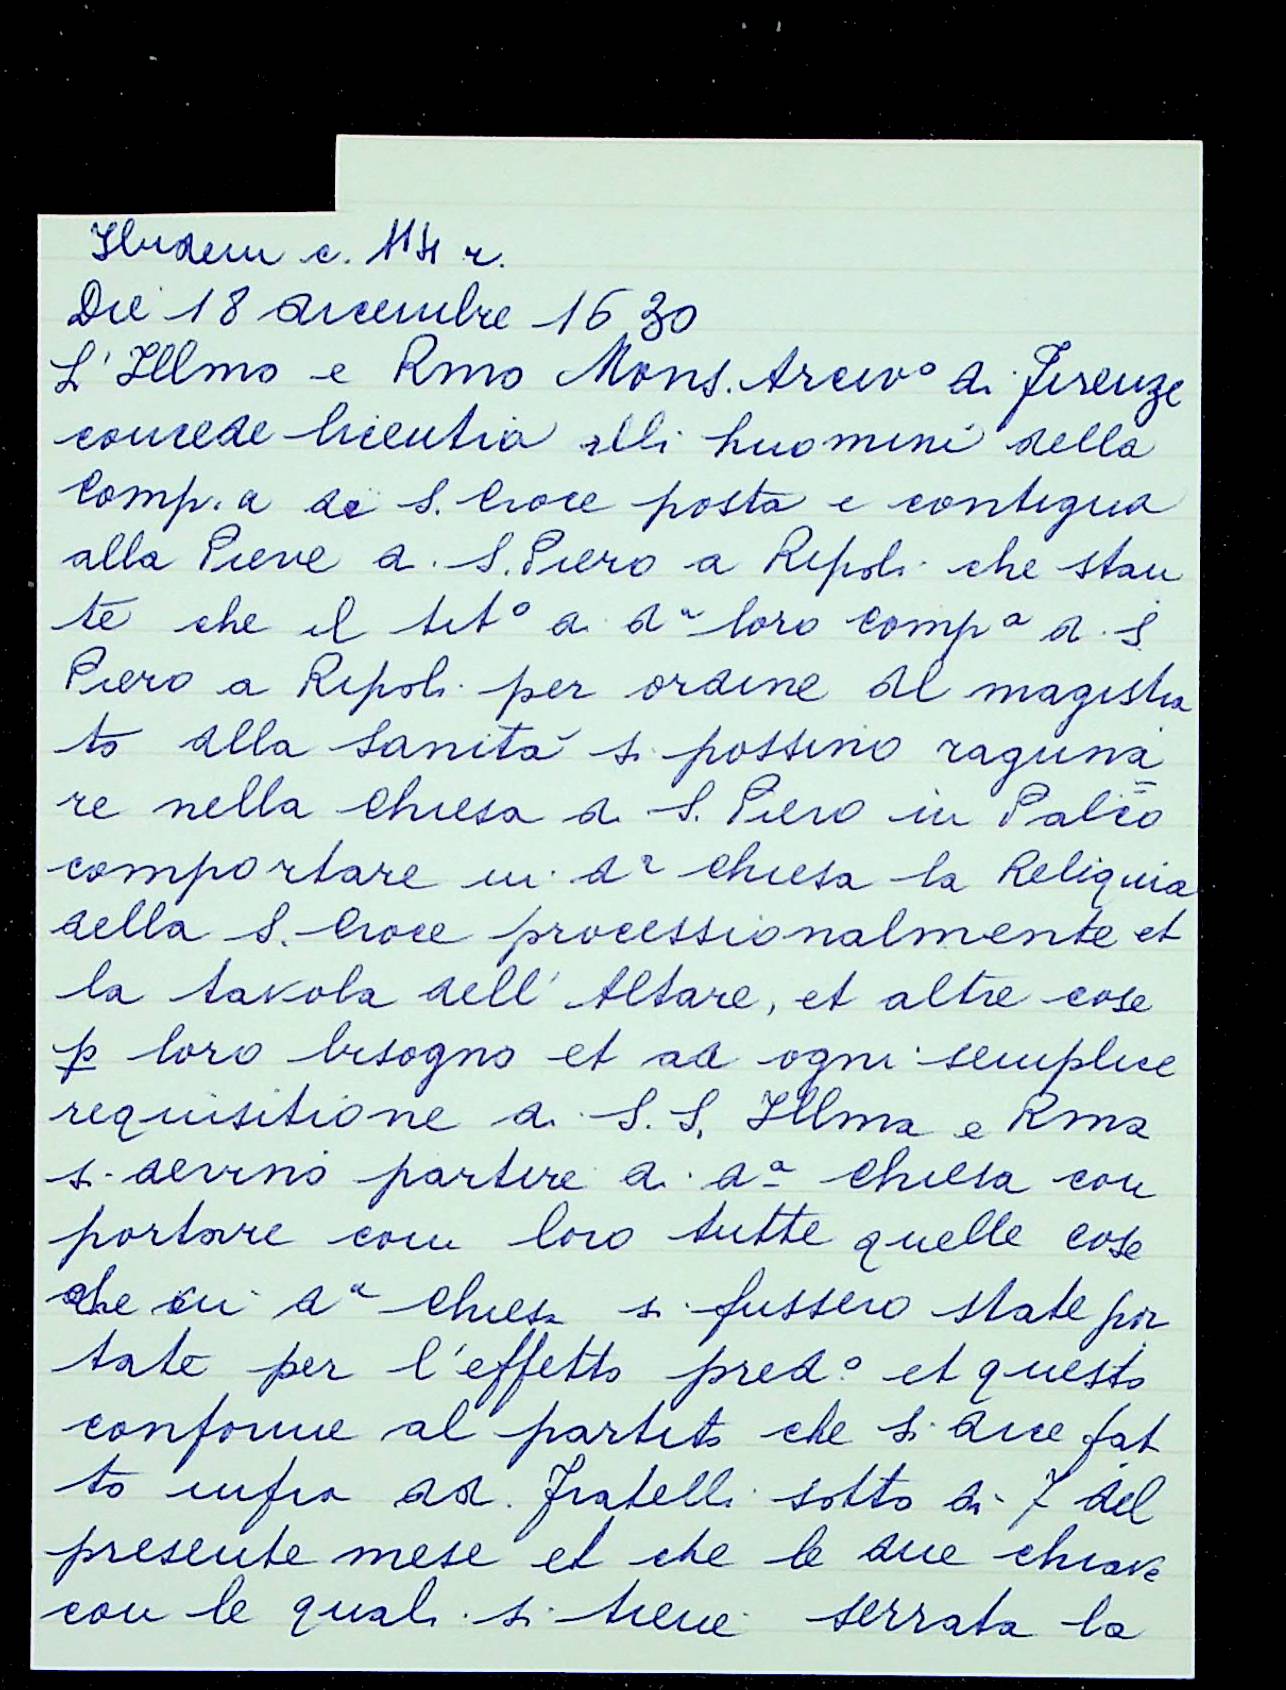 Ibidem c. 114 r.
Die 18 dicembre 1630
L'Illmo e Rmo Mons. Arcivº di Firenze
concede licentia alli huomini della
Comp.a di S. Croce posta e contigua
alla Pieve di S. Piero a Ripoli che stan
te che il titº di dª loro Compª di S.
Piero a Ripoli per ordine del magistra
to della Sanità si possino raguna
re nella Chiesa di S. Piero in Palco
comportare in dª Chiesa la Reliquia
della S. Croce processionalmente et
la tavola dell'Altare, et altre cose
p loro bisogno et ad ogni semplice
requisitione di S. S. Illma e Rma
si devino partire di dª Chiesa con
portare con loro tutte quelle cose
che in dª Chiesa si fussero state por
tate per l'effetto predº et questo
conforme al partito che si dice fat
to infra dd. Fratelli sotto di 7 del
presente mese et che le due chiave
con le quali si tiene serrata la